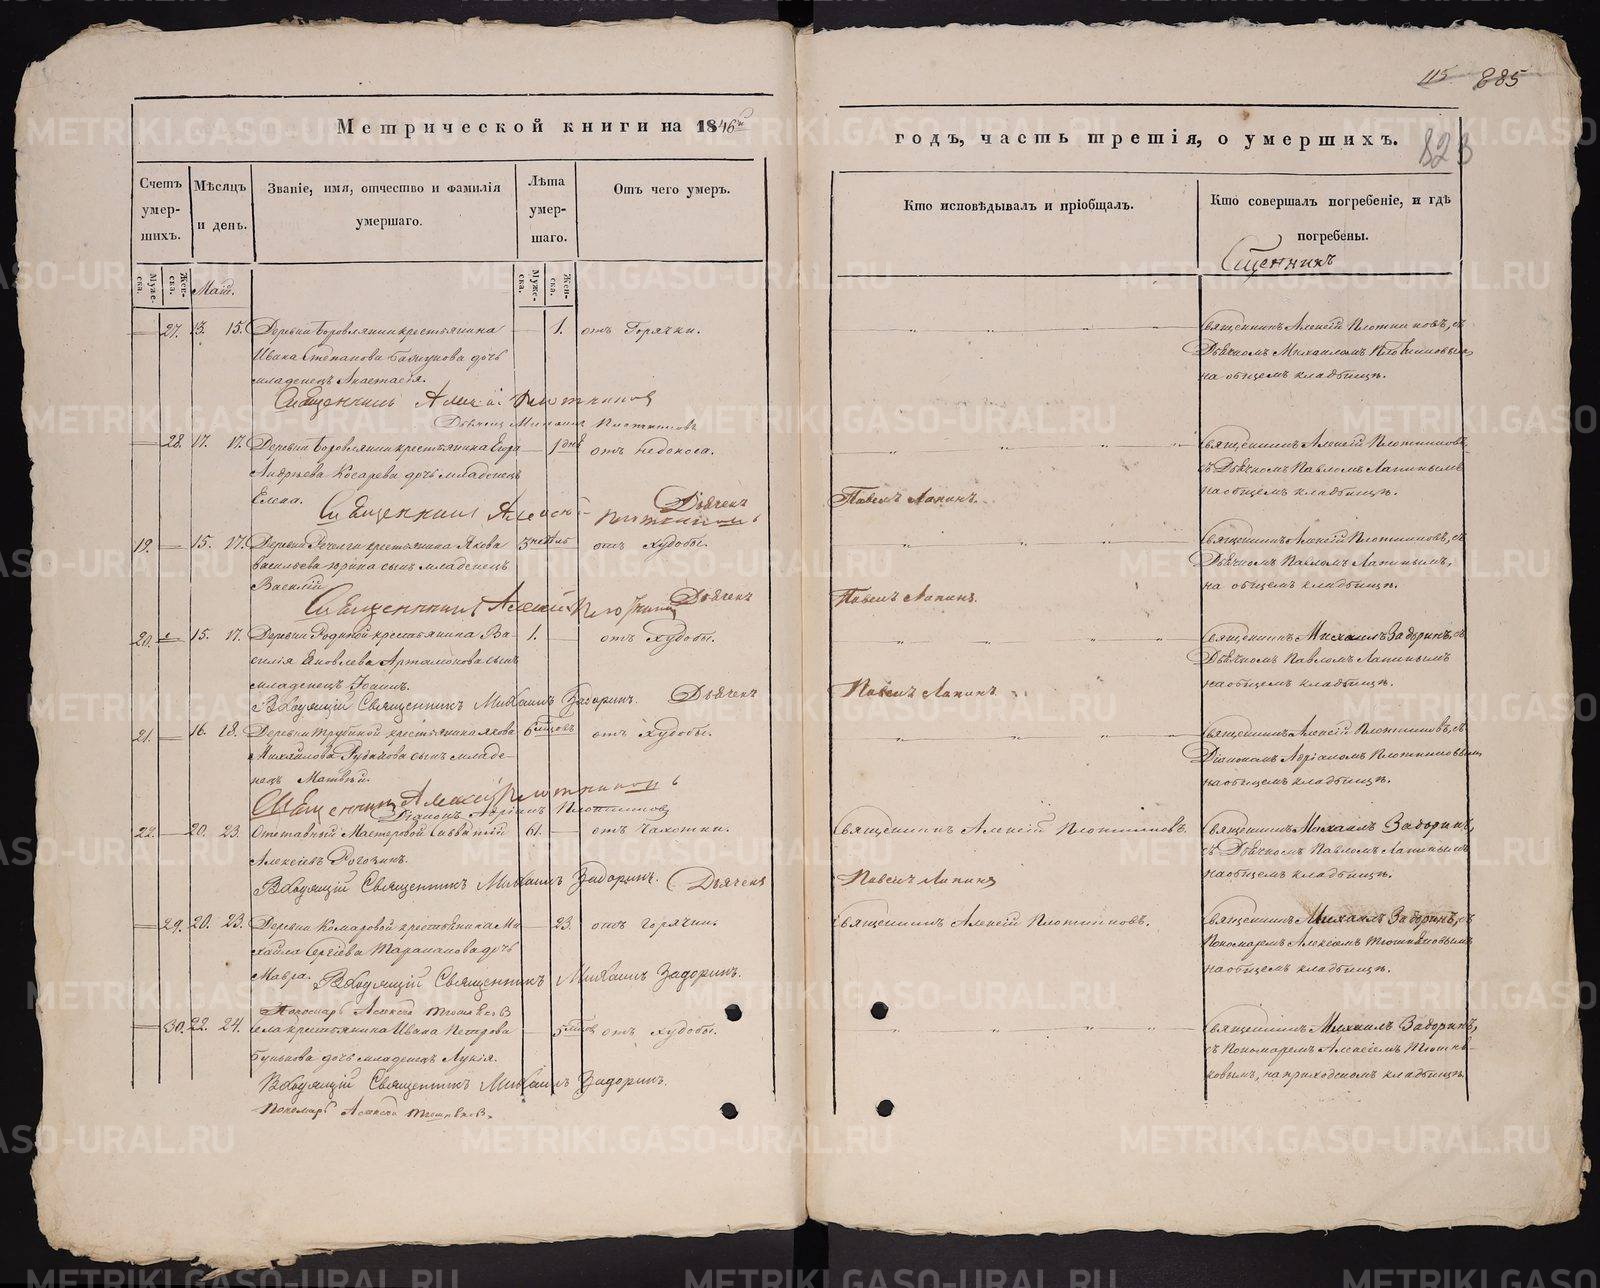 115 885
Метрической книги на 1846й
годъ, часть третія, о умершихъ.
823
Счетъ умер-шихъ.
Мѣсяцъ и день.
Званіе, имя, отчество и фамилія умершаго.
Лѣта умер-шаго.
Отъ чего умеръ.
Кто исповѣдывалъ и пріобщалъ.
Кто совершалъ погребеніе, и гдѣ погребены.
Муже-ска. Жен-ска.
Маій.
Муже-ска. Жен-ска.
27. 13. 15. Деревни Боровлянки крестьянина 1. отъ Горячки. Священникъ Алексій Плотниковъ, съ
Ивана Степанова дочь Дьячкомъ Михаиломъ Плотниковымъ
младенецъ Анастасія. на общемъ кладбищѣ.
Священникъ Алексій Плотниковъ
Дьячекъ Михаилъ Плотниковъ
28. 17. 17. Деревни Боровлянки крестьянина Егора 1 дня отъ недоноса. Священникъ Алексій Плотниковъ
Андреева Косарева дочь младенецъ съ Дьячкомъ Павломъ Лапинымъ
Елена. на общемъ кладбищѣ.
Священникъ Алексій Плотниковъ Дьячекъ Павелъ Лапинъ.
19. 15. 17. крестьянина Якова 3 недѣль отъ худобы. Священникъ Алексій Плотниковъ, съ
Васильева сынъ младенецъ Дьячкомъ Павломъ Лапинымъ,
Василій на общемъ кладбищѣ.
Священникъ Алексій Плотниковъ Дьячекъ Павелъ Лапинъ.
20. 15. 17. Деревни Родиной крестьянина Ва- 1. отъ худобы. Священникъ Михаилъ Задоринъ, съ
силія Яковлева Артамонова сынъ Дьячкомъ Павломъ Лапинымъ
младенецъ Іоаннъ. на общемъ кладбищѣ.
Входящій Священникъ Михаилъ Задоринъ. Дьячекъ Павелъ Лапинъ
21. 16. 18. Деревни Трубиной крестьянина Якова 6 мѣсцовъ отъ худобы. Священникъ Алексій Плотниковъ, съ
Михайлова сынъ младе- Діакономъ Адріаномъ Плотниковымъ
нецъ Матвѣй. на общемъ кладбищѣ.
Священникъ Алексій Плотниковъ
Діаконъ Адріанъ Плотниковъ
22. 20. 23. Отставный Мастеровой Савватій 61. отъ Чахотки. Священникъ Алексій Плотниковъ. Священникъ Михаилъ Задоринъ,
Алексіевъ Рогозинъ. съ Дьячкомъ Павломъ Лапинымъ
на общемъ кладбищѣ.
Входящій Священникъ Михаилъ Задоринъ. Дьячекъ Павелъ Лапинъ
29. 20. 23. Деревни Комаровой крестьянина Ми- 23. отъ горячки. Священникъ Алексій Плотниковъ. Священникъ Михаилъ Задоринъ, съ
хайла Сергіева дочь Пономаремъ Алексіемъ
Мавра. Входящій Священникъ Михаилъ Задоринъ. на общемъ кладбищѣ.
Пономарь Алексѣй
30. 22. 24. Села крестьянина Ивана Петрова 5 отъ худобы. Священникъ Михаилъ Задоринъ,
Бунькова дочь младенецъ Лукія. съ Пономаремъ Алексіемъ
на приходскомъ кладбищѣ.
Входящій Священникъ Михаилъ Задоринъ.
Пономарь Алексѣй
METRIKI.GASO-URAL.RU